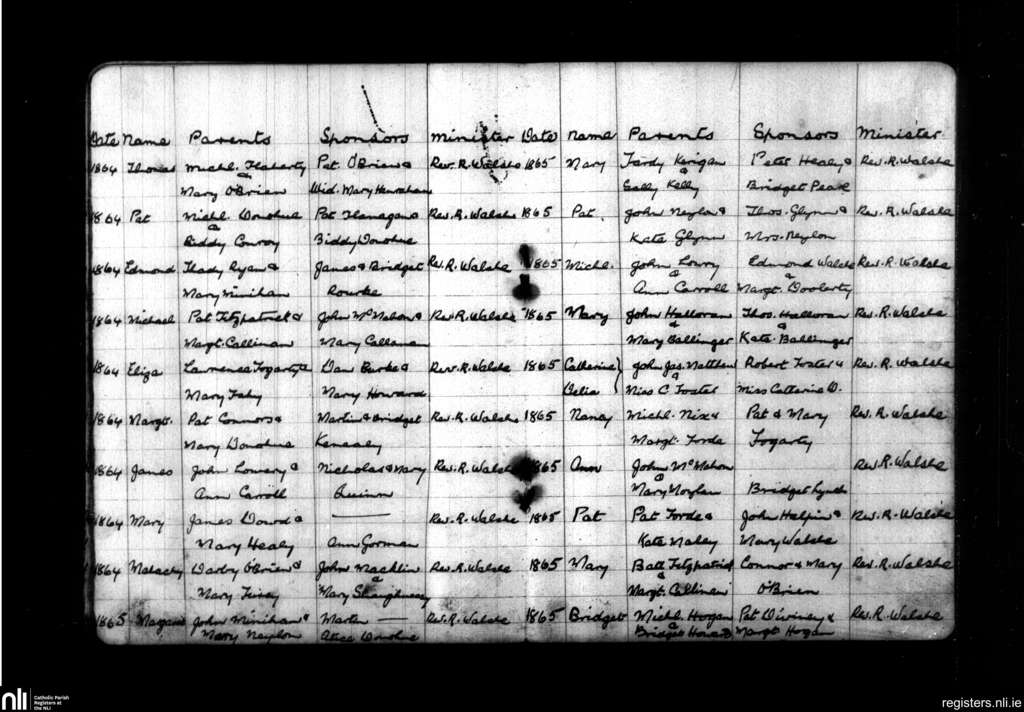 Date Name Parents Sponsors Minister Date Name Parents Sponsors Minister
1864 Thomas Michl. Flaherty Pat O'Brien & Rev. R. Walshe 1865 Mary Kerigan Peter Healy & Rev. R. Walshe
& &
Mary O'Brien Wid. Mary Hanrahan Sally Kelly Bridget Peak
1864 Pat Michl. Donohue Pat Flanagan & Rev. R. Walshe 1865 Pat. John Neylon & Thos. Glynn & Rev. R. Walshe
&
Biddy Conroy Biddy Donohue Kate Glynn Mrs. Neylon
1864 Edmond Thady Ryan & James & Bridget Rev. R. Walshe 1865 Michl. John Lowry Edmond Walshe Rev. R. Walshe
& &
Mary Minihan Rourke Ann Carroll Margt. Doolarty
1864 Michael Pat Fitzpatrick & John McMahon & Rev. R. Walshe 1865 Mary John Halloran Thos. Halloran Rev. R. Walshe
& &
Margt. Callinan Mary Callanan Mary Ballinger Kate Ballinger
1864 Eliza Lawrence Fogarty & Dan Burke & Rev. R. Walshe 1865 Catherine John Jas. Matthew Robert Foster & Rev. R. Walshe
&
Mary Fahy Mary Howard Delia Miss C Foster Miss Catherine D.
1864 Margt. Pat Connors & Martin & Bridget Rev. R. Walshe 1865 Nancy Michl. Nix & Pat & Mary Rev. R. Walshe
Mary Donohue Kenealy Margt. Forde Fogarty
1864 James John Lowery & Nicholas & Mary Rev. R. Walshe 1865 Ann John McMahon Rev. R. Walshe
&
Ann Carroll Quinn Mary Moylan Bridget Lynch
1864 Mary James Dowd & —— Rev. R. Walshe 1865 Pat Pat Forde & John Halpin & Rev. R. Walshe
Mary Healy Ann Gorman Kate Maley Mary Walshe
1864 Malachy Darby O'Brien & John Machlin Rev. R. Walshe 1865 Mary Batt Fitzpatrick Connor & Mary Rev. R. Walshe
& &
Mary Mary Shaughnessy Margt. Callinan O'Brien
1865 Margaret John Minihan & Martin — Rev. R. Walshe 1865 Bridget Michl. Hogan Pat Diviney & Rev. R. Walshe
&
Mary Neylon Alice Donohue Bridget Margt Hogan
nli
Catholic Parish
Registers at
the NLI
registers.nli.ie